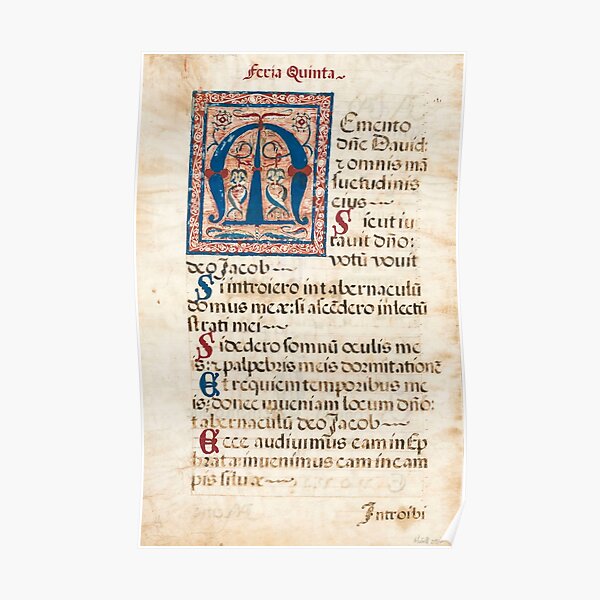 Feria Quinta~
MEmento
dñe Dauid:
⁊ omnis mã
suetudinis
eius~
Sicut iu
rauit dño:
votũ vouit
deo Jacob~
Si introiero in tabernaculũ
domus meæ: si ascendero in lectũ
strati mei~
Si dedero somnũ oculis me
is: ⁊ palpebris meis dormitationẽ
Et requiem temporibus me
is; donec inueniam locum dño:
tabernaculũ deo Jacob~
Ecce audiuimus eam in Ep
hrata: inuenimus eam in cam
pis siluæ~
Introibi